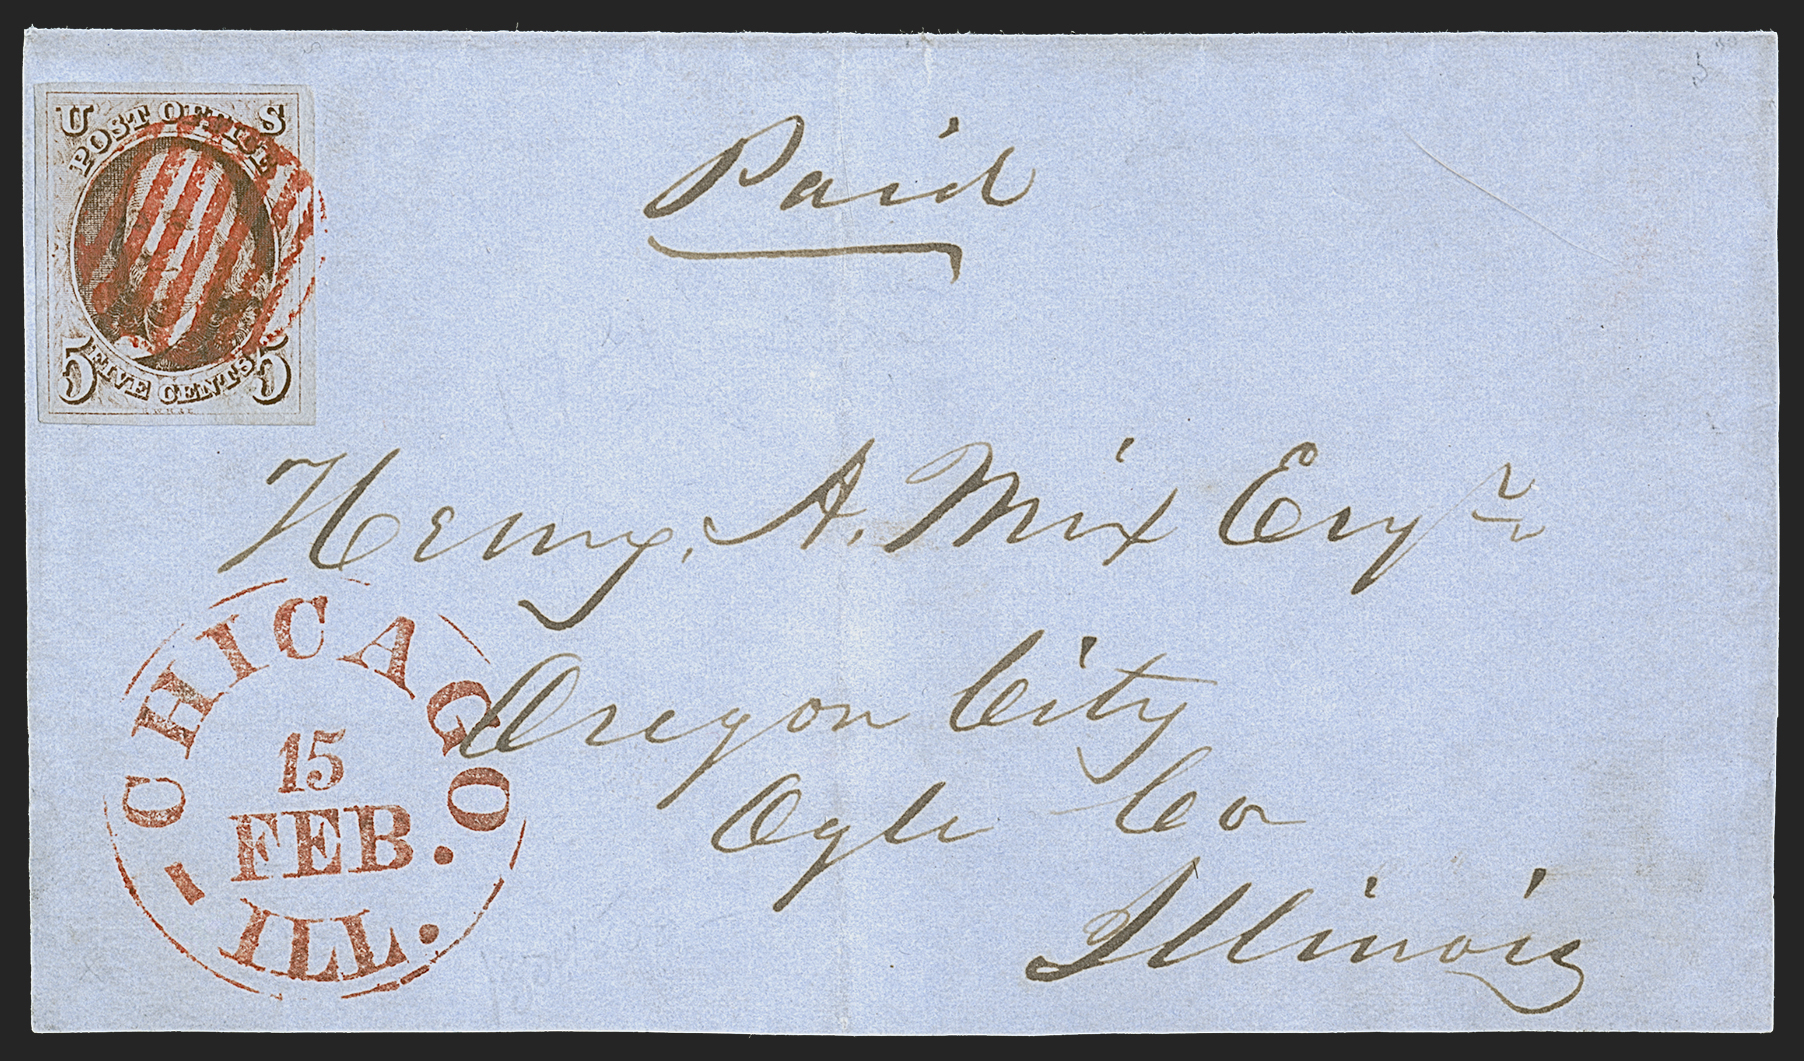 U S
POST OFFICE
5 FIVE CENTS 5
R W H & E
Paid
Henry. A. Mix Esqr
Oregon City
Ogle Co
Illinois
CHICAGO
15
FEB.
ILL.